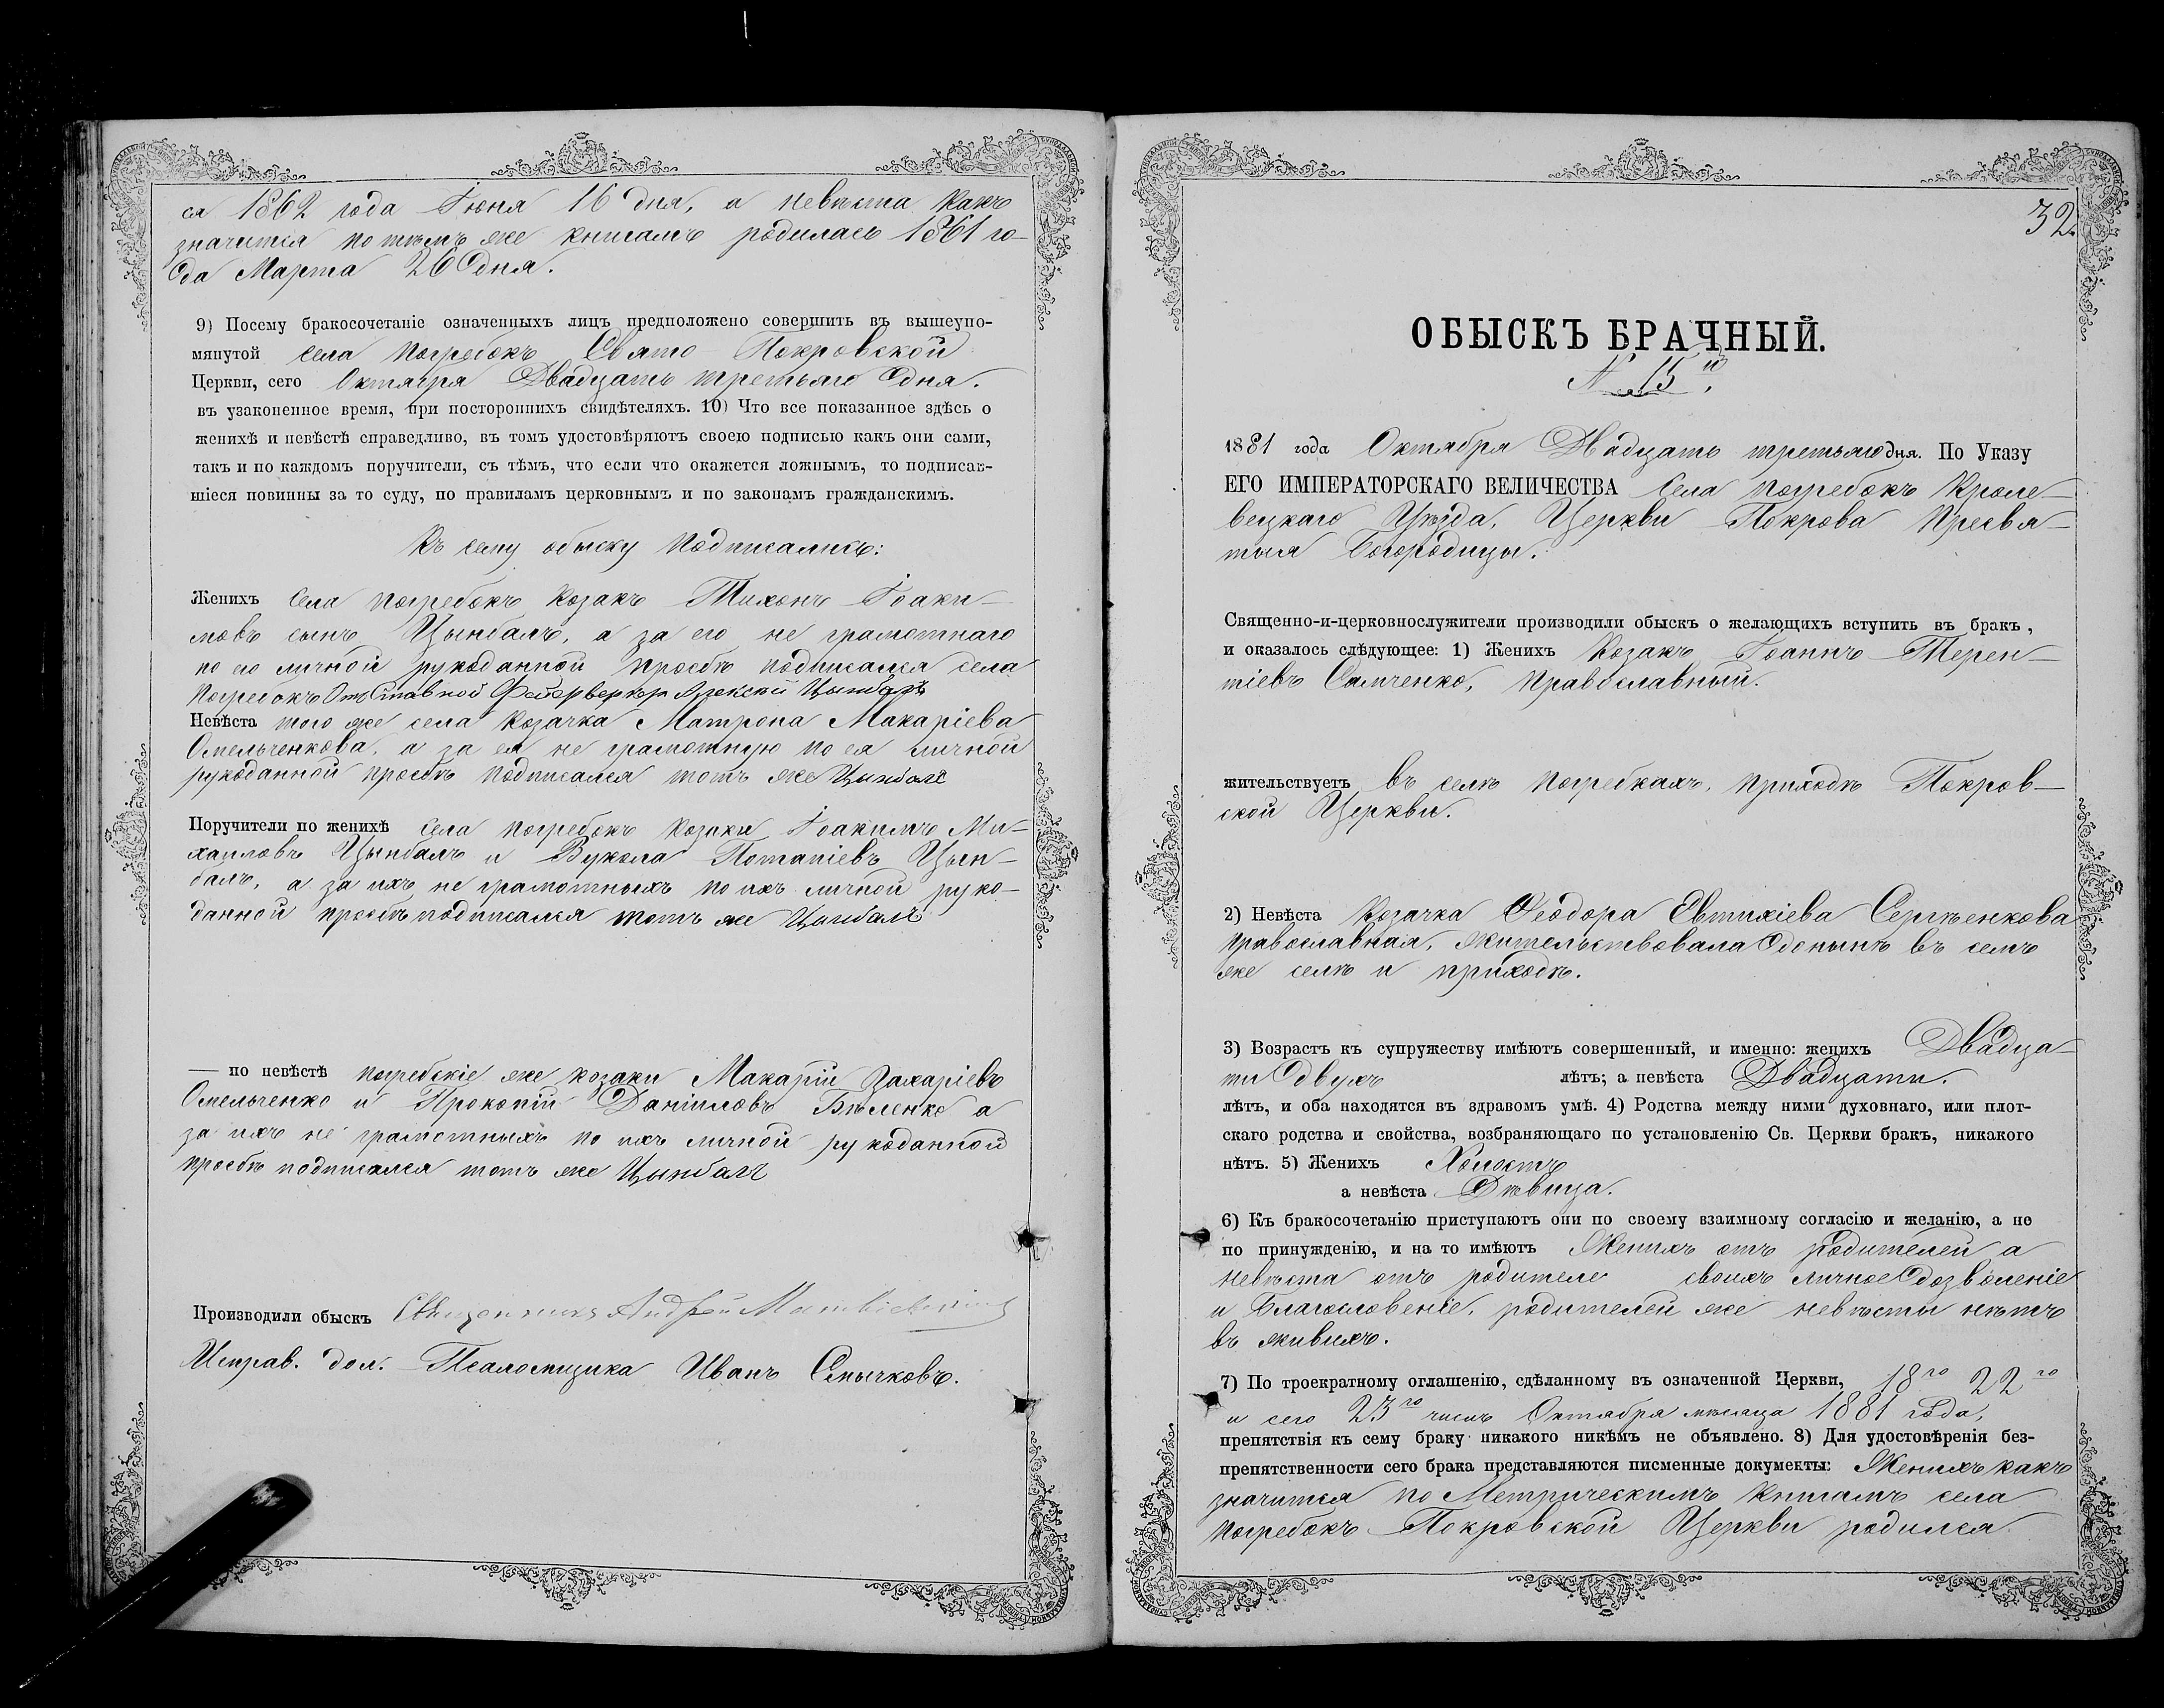 ся 1862 года Іюня 16 дня, а невѣста какъ
значится по тѣмъ же книгамъ родилась 1861 го-
да Марта 26 дня.
9) Посему бракосочетаніе означенныхъ лицъ предположено совершить въ вышеупо-
мянутой села Погребокъ Свято Покровской
Церкви, сего Октября Двадцать третьяго дня.
въ узаконенное время, при постороннихъ свидѣтеляхъ. 10) Что все показанное здѣсь о
женихѣ и невѣстѣ справедливо, въ томъ удостовѣряютъ своею подписью какъ они сами,
такъ и по каждомъ поручители, съ тѣмъ, что если что окажется ложнымъ, то подписав-
шіеся повинны за то суду, по правиламъ церковнымъ и по законамъ гражданскимъ.
Къ сему обыску подписались:
Женихъ села Погребокъ козакъ Тихонъ Іоаки-
мовъ сынъ Цынбалъ, а за его не грамотнаго
по его личной рукоданной просьбѣ подписался села
Погребокъ Отставной Фейерверкер Алексей Цынбалъ
Невѣста того же села козачка Матрона Макаріева
Омельченкова, а за ея не грамотную по ея личной
рукоданной просьбѣ подписался тотъ же Цынбалъ
Поручители по женихѣ села Погребокъ козаки Іоакимъ Ми-
хаиловъ Цынбалъ и Вукола Потапіевъ Цын-
балъ, а за ихъ не грамотныхъ по ихъ личной руко-
данной просьбѣ подписался тотъ же Цынбалъ
— по невѣстѣ погребскіе же козаки Макарій Захаріевъ
Омельченко и Прокопій Даніиловъ Бѣленко а
за ихъ не грамотныхъ по ихъ личной рукоданной
просьбѣ подписался тотъ же Цынбалъ
Производили обыскъ Священникъ Андрей
Исправ. дол. Псаломщика Иванъ Смычковъ.
32.
ОБЫСКЪ БРАЧНЫЙ.
№ 15й.
1881 года Октября Двадцать третьяго дня. По Указу
ЕГО ИМПЕРАТОРСКАГО ВЕЛИЧЕСТВА села Погребокъ Кроле-
вецкаго Уѣзда, Церкви Покрова Пресвя-
тыя Богородицы.
Священно-и-церковнослужители производили обыскъ о желающихъ вступить въ бракъ,
и оказалось слѣдующее: 1) Женихъ Козакъ Іоаннъ Терен-
тіевъ Самченко, православный.
жительствуетъ въ селѣ Погребкахъ, приходѣ Покров-
ской Церкви.
2) Невѣста козачка Феодора Евтихіева Сергѣенкова
православная, жительствовала донынѣ въ семъ
же селѣ и приходѣ.
3) Возрастъ къ супружеству имѣютъ совершенный, и именно: женихъ Двадца-
ти двухъ лѣтъ; а невѣста Двадцати.
лѣтъ, и оба находятся въ здравомъ умѣ. 4) Родства между ними духовнаго, или плот-
скаго родства и свойства, возбраняющаго по установленію Св. Церкви бракъ, никакого
нѣтъ. 5) Женихъ Холостъ
а невѣста Дѣвица.
6) Къ бракосочетанію приступаютъ они по своему взаимному согласію и желанію, а не
по принужденію, и на то имѣютъ Женихъ отъ родителей а
невѣста отъ родителе своихъ личное дозволеніе
и Благословеніе, родителей же невѣсты нѣтъ
въ живыхъ.
7) По троекратному оглашенію, сдѣланному въ означенной Церкви, 18го 22го
и сего 23го числъ Октября мѣсяца 1881 года,
препятствія къ сему браку никакого никѣмъ не объявлено. 8) Для удостовѣренія без-
препятственности сего брака представляются писменные документы: Женихъ какъ
значится по Метрическимъ книгамъ села
Погребокъ Покровской Церкви родился